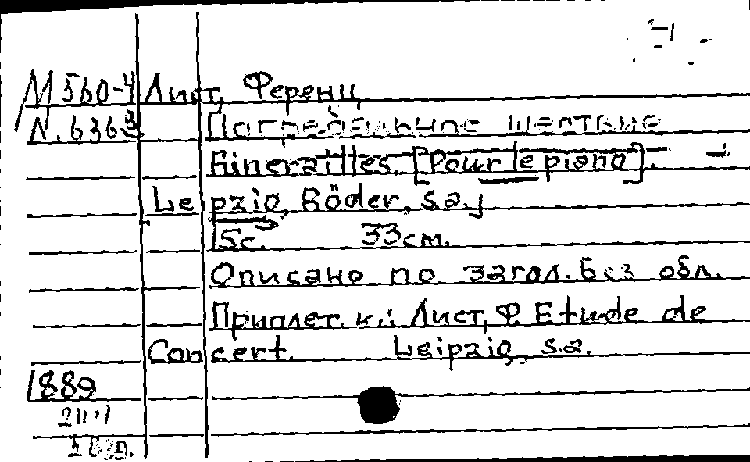 М 560-4 Лист, Ференц
N. 6363 Погребальное шествие
Funerailles. [Pour le piano].
Leipzig, Röder, s.a.
15c. 33см.
Описано по загол. без обл.
Приплет. к.: Лист, Ф. Etude de
Concert. Leipzig, s.a.
1889